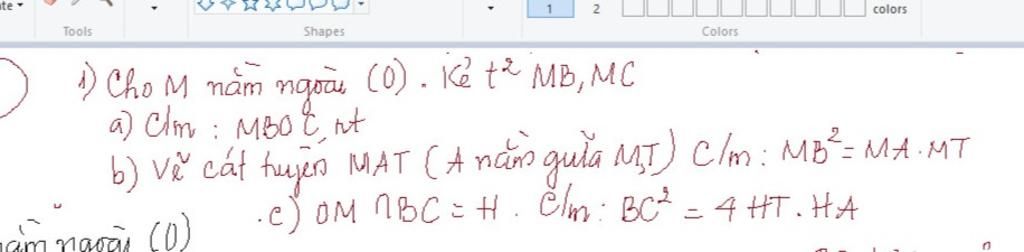 Tools
Shapes
1
2
Colors
colors
1) Cho M nằm ngoài (O). Kẻ t² MB, MC
a) C/m : MBOC nt
b) Vẽ cát tuyến MAT (A nằm giữa M,T) C/m : MB² = MA.MT
c) OM ∩ BC = H . C/m : BC² = 4 HT . HA
nằm ngoài (O)